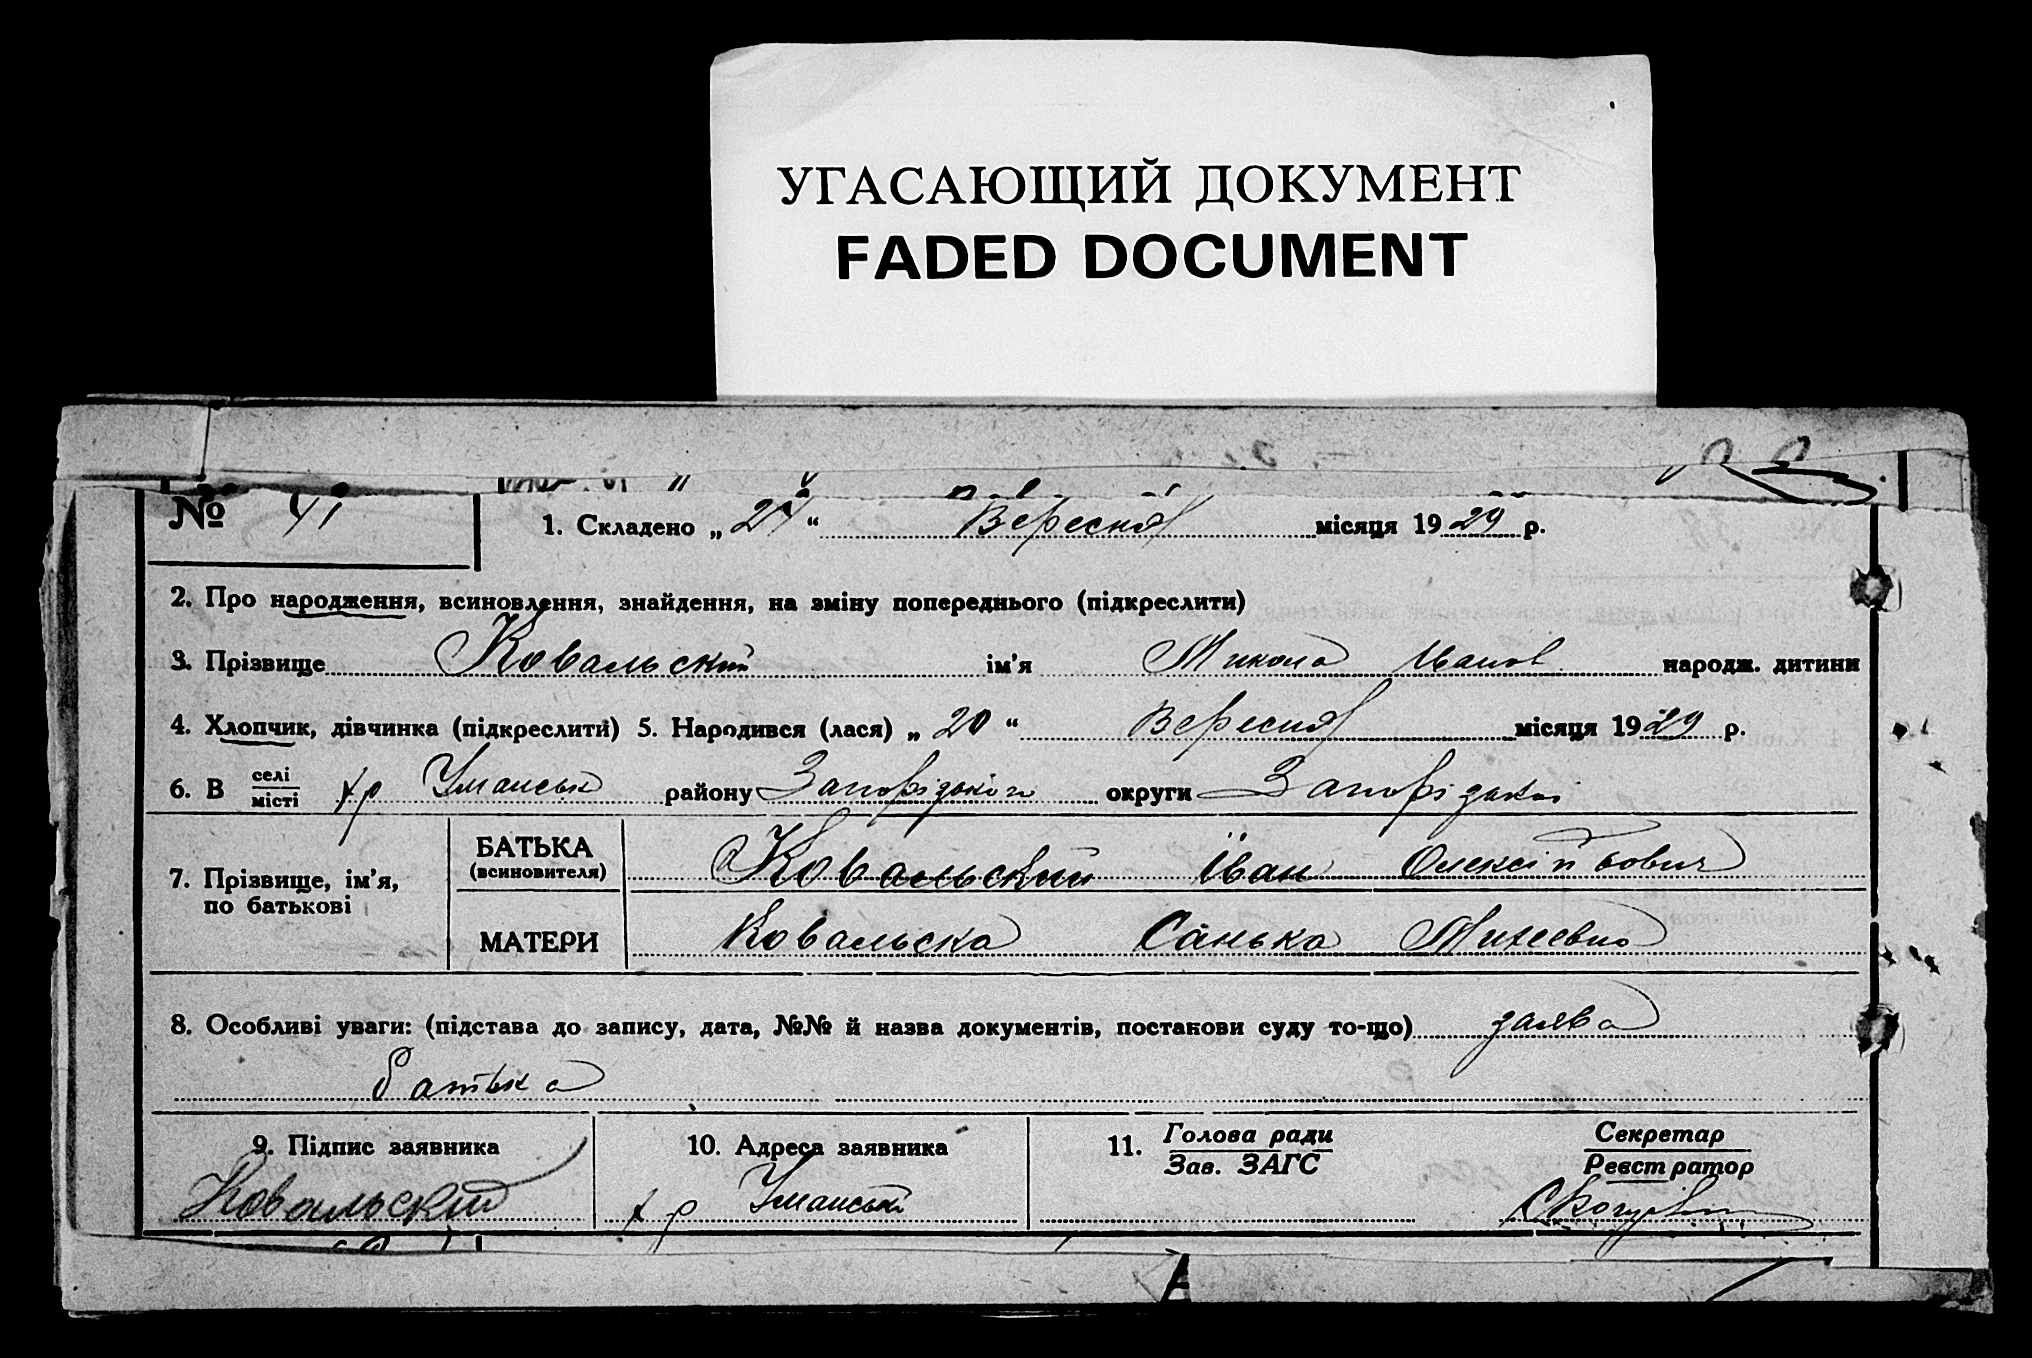 УГАСАЮЩИЙ ДОКУМЕНТ
FADED DOCUMENT
№ 41
1. Складено „ 24 “ Вересня місяця 1929 р.
2. Про народження, всиновлення, знайдення, на зміну попереднього (підкреслити)
3. Прізвище Ковальский ім'я Микола Іванов народж. дитини
4. Хлопчик, дівчинка (підкреслити) 5. Народився (лася) „ 20 “ Вересня місяця 1929 р.
6. В селі/місті хр Уманськ району Запорізького округи Запорізької
7. Прізвище, ім'я, по батькові
БАТЬКА (всиновителя) Ковальский Іван Олексійович
МАТЕРИ Ковальска Санька Михеевна
8. Особливі уваги: (підстава до запису, дата, №№ й назва документів, постанови суду то-що) заява
батька
9. Підпис заявника 10. Адреса заявника 11. Голова ради/Зав. ЗАГС Секретар/Реєстратор
Ковальский хр Уманськ